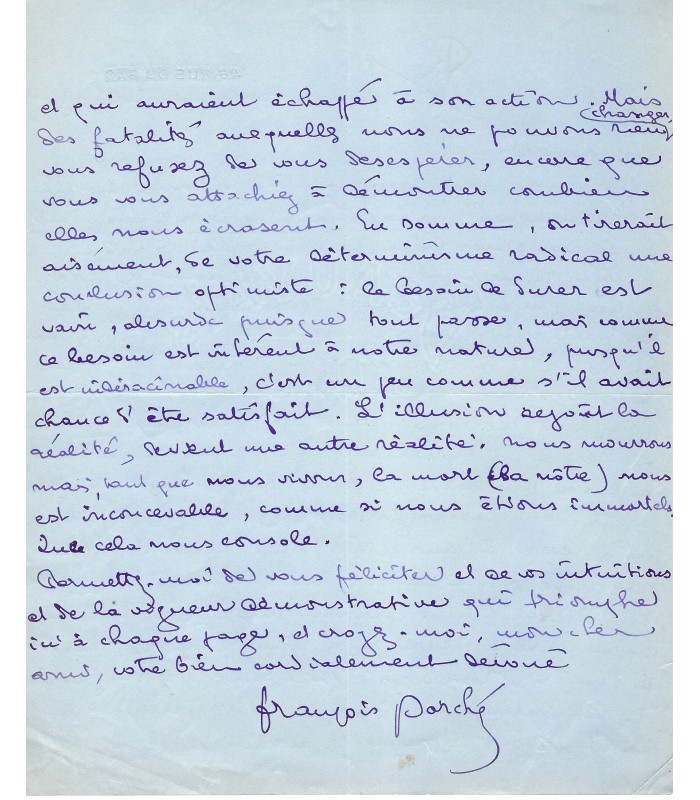 et qui auraient échappé à son action. Mais
des fatalités auxquelles nous ne pouvons rien changer
vous refusez de vous desespérer, encore que
vous vous attachiez à démontrer combien
elles nous écrasent. En somme, on tirerait
aisément, de votre déterminisme radical une
conclusion optimiste : le besoin de durer est
vain, absurde puisque tout passe, mais comme
ce besoin est inhérent à notre nature, puisqu'il
est indéracinable, c'est un peu comme s'il avait
chance d'être satisfait. L'illusion rejoint la
réalité, devient une autre réalité. Nous mourrons
mais, tant que nous vivons, la mort (la nôtre) nous
est inconcevable, comme si nous étions immortels.
Que cela nous console.
Permettez-moi de vous féliciter et de vos intuitions
et de la vigueur démonstrative qui triomphe
ici à chaque page, et croyez-moi, mon cher
ami, votre bien cordialement dévoué
françois porché